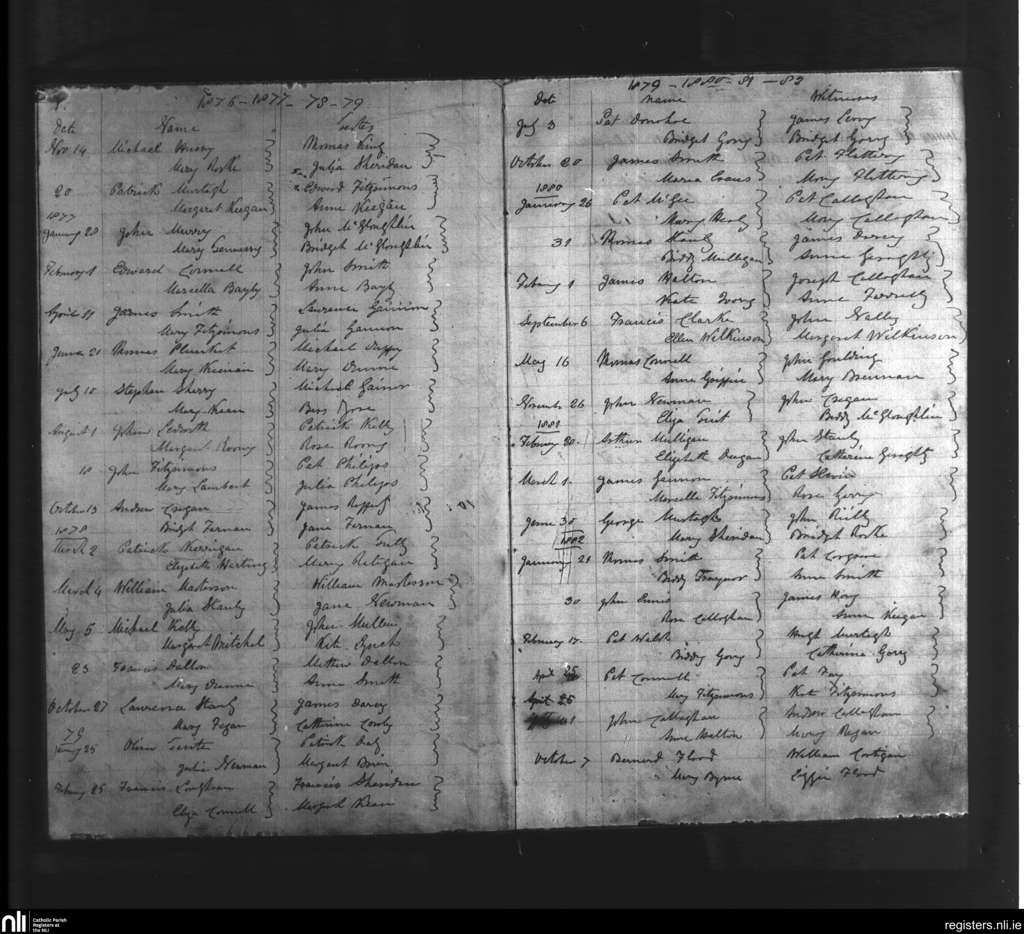 1876-1877-78-79
Date Name Testes
Nov 14 Michael Thomas King
Mary Rorke Julia Sheridan
20 Patrick Murtagh Edward Fitzsimons
Margaret Keegan Anne Keegan
1877
January 20 John Murry John McGloughlin
Mary Bridget McGloughlin
February 1 Edward Connell John Smith
Marcella Bayly Anne Bayly
April 11 James Smith Lawrence Gannon
Mary Fitzsimons Julia Gannon
21 Thomas Plunket Michael Duffy
Mary Keenan Mary Dunne
July 15 Stephen Sherry Michael Gainor
Mary Kean
August 1 John Ledwith Patrick Kelly
Margaret Roony Rose Roony
18 John Fitzsimons Pat Philips
Mary Lambert Julia Philips
October 13 Andrew James
1878 Bridget Fernan Jane Fernan
March 2 Patrick Kerrigan Patrick
Elizabeth
March 4 William Masterson William Masterson
Julia Hanly Jane Newman
May 5 Michael Kelly John Mullen
Margaret Mitchel Kate
23 Francis Dalton Mathew Dalton
Mary Dunne Anne Smith
October 27 Lawrence Hanly James Darcy
Mary Fagan Catherine Conly
79
25 Patrick Daly
Julia Newman Margaret
February 25 Francis Francis Sheridan
Eliza Connell Margaret Kean
1879-1880-81-82
Date Name Witnesses
July 3 Pat Donohoe James Leroy
Bridget Gorry Bridget Gorry
October 20 James Smith Pat Flattery
Maria Evans Mary Flattery
1880
January 26 Pat McGee Pat Callaghan
Mary Healy Mary Callaghan
31 Thomas Hanly James Darcy
Biddy Mulligan Anne Geraghty
February 1 James Halton Joseph Callaghan
Kate Anne
September 6 Francis Clarke John Nally
Ellen Wilkinson Margaret Wilkinson
May 16 Thomas Connell John Goulding
Anne Griffin Mary Brennan
November 26 John Newman John
1881 Eliza Biddy McGloughlin
February 20 Arthur Mulligan John Hanly
Elizabeth Catherine Geraghty
March 1 James Gannon Pat
Marcella Fitzsimons Rose Gerry
June 30 George Murtagh John Reilly
1882 Mary Sheridan Bridget Rorke
January 21 Thomas Smith Pat
Biddy Traynor Anne Smith
30 John Ennis James
Rose Callaghan Anne Keegan
February 17 Pat Walsh Hugh Murtagh
Biddy Gorry Catherine Gorry
April 25 Pat Connell Pat Fay
April 25 Mary Fitzsimons Kate Fitzsimons
John Callaghan Andrew Callaghan
Anne Halton Mary Regan
October 7 Bernard Flood William Costigan
Mary Byrne Flood
nli Catholic Parish
Registers at
the NLI
registers.nli.ie